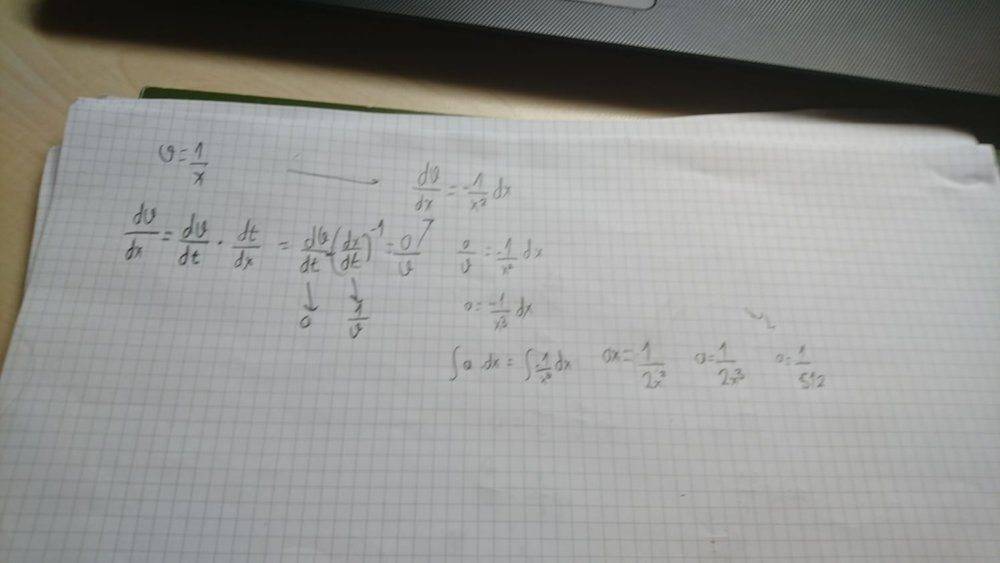 υ = 1/x
dυ/dx = -1/x² dx
dυ/dx = dυ/dt · dt/dx = dυ/dt (dx/dt)^-1 = a/υ
a/υ = -1/x² dx
↓ a ↓ 1/υ
a = -1/x³ dx
∫ a dx = ∫ -1/x³ dx
ax = 1/2x²
a = 1/2x³
a = 1/512